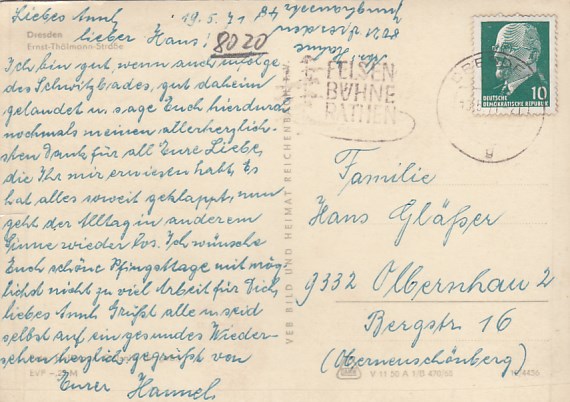 Liebes Annl, 19.5.71
lieber Hans! 8020
Dresden
Ernst-Thälmann-Straße
Ich bin gut, wenn auch infolge
des Schwitzbades, gut daheim
gelandet u. sage Euch hierdurch
nochmals meinen allerherzlich-
sten Dank für all Eure Liebe,
die Ihr mir erwiesen habt. Es
hat alles soweit geklappt, nun
geht der Alltag in anderem
Sinne wieder los. Ich wünsche
Euch schöne Pfingsttage mit mög-
lichst nicht zu viel Arbeit für Dich,
liebes Annl. Grüßt alle u. seid
selbst auf ein gesundes Wieder-
sehen herzlich gegrüßt von
Eurer Hannel.
EVP
VEB BILD UND HEIMAT REICHENBACH
FELSEN
BÜHNE
RATHEN
DEUTSCHE
DEMOKRATISCHE REPUBLIK
10
Familie
Hans Gläßer
9332 Olbernhau 2
Bergstr 16
(Oberneuschönberg)
V 11 50 A 1/B